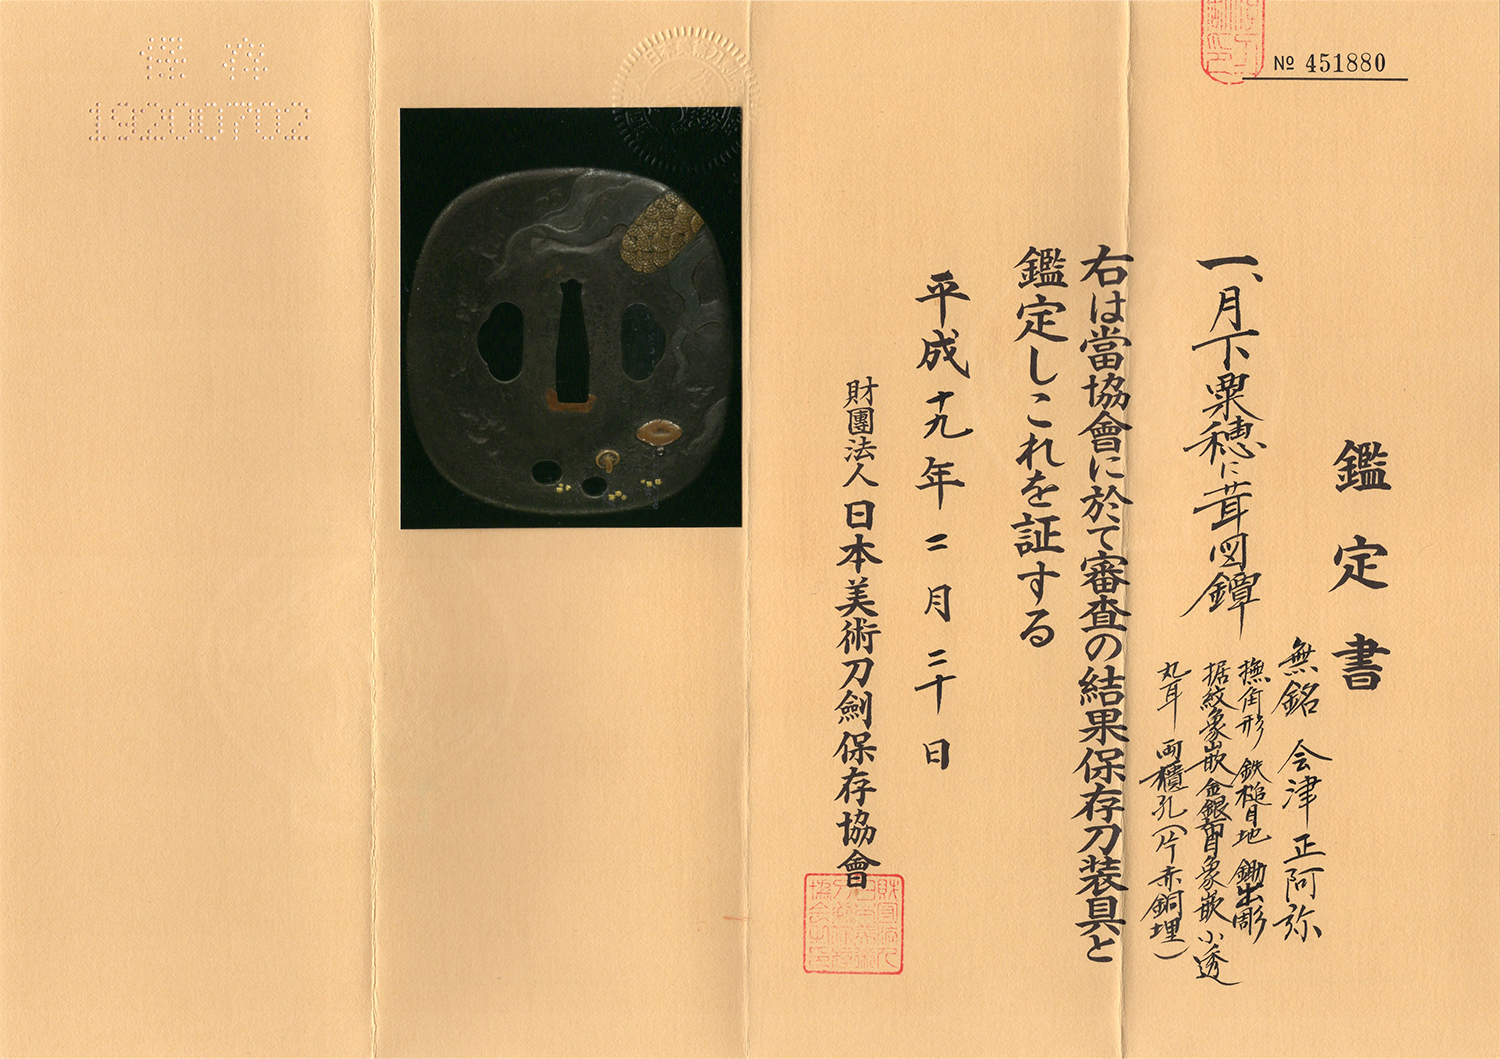 № 451880
鑑定書
一、月下粟穂に茸図鐔
無銘 会津正阿弥
撫角形 鉄槌目地 鋤出彫
据紋象嵌 金銀布目象嵌 小透
丸耳 両櫃孔(片赤銅埋)
右は當協會に於て審査の結果保存刀装具と
鑑定しこれを証する
平成十九年二月二十日
財團法人 日本美術刀劍保存協會
保存
19200702